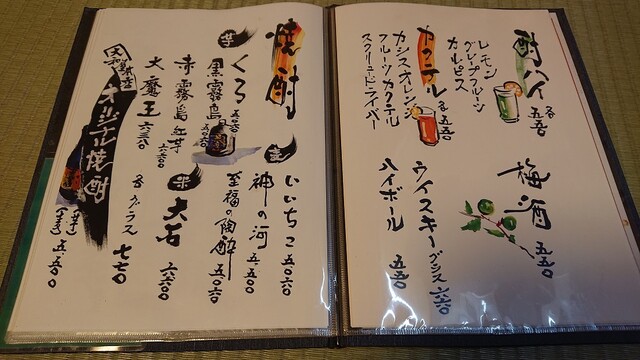 酎ハイ 各五五〇
レモン
グレープフルーツ
カルピス
カクテル 各五五〇
カシスオレンジ
フルーツカクテル
スクリュードライバー
梅酒 五五〇
ウイスキー グラス 六六〇
ハイボール 五五〇
焼酎
芋
くろ 五〇六〇
黒霧島 五〇六〇
赤霧島 紅芋 六六〇〇
大魔王 六三八〇
麦
いいちこ 五〇六〇
神の河 五五〇〇
至福の陶酔 五〇六〇
米
大石 六六〇〇
各グラス 七七〇
オリジナル焼酎